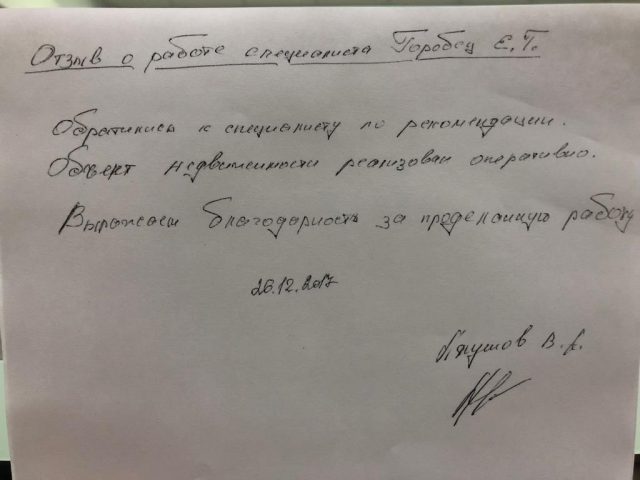 Отзыв о работе специалиста Горобец Е.Т.
Обратились к специалисту по рекомендации.
Объект недвижимости реализован оперативно.
Выражаем благодарность за проделанную работу
26.12.2017
В.А.